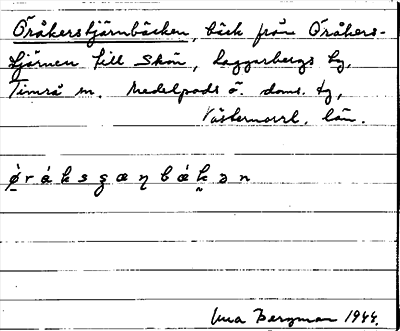 Öråkerstjärnbäcken, bäck från Öråkers-
tjärnen till Skön, Laggarbergs by,
Timrå sn. Medelpads ö. doms. tg,
Västernorrl. län.
Una Bergman 1944.